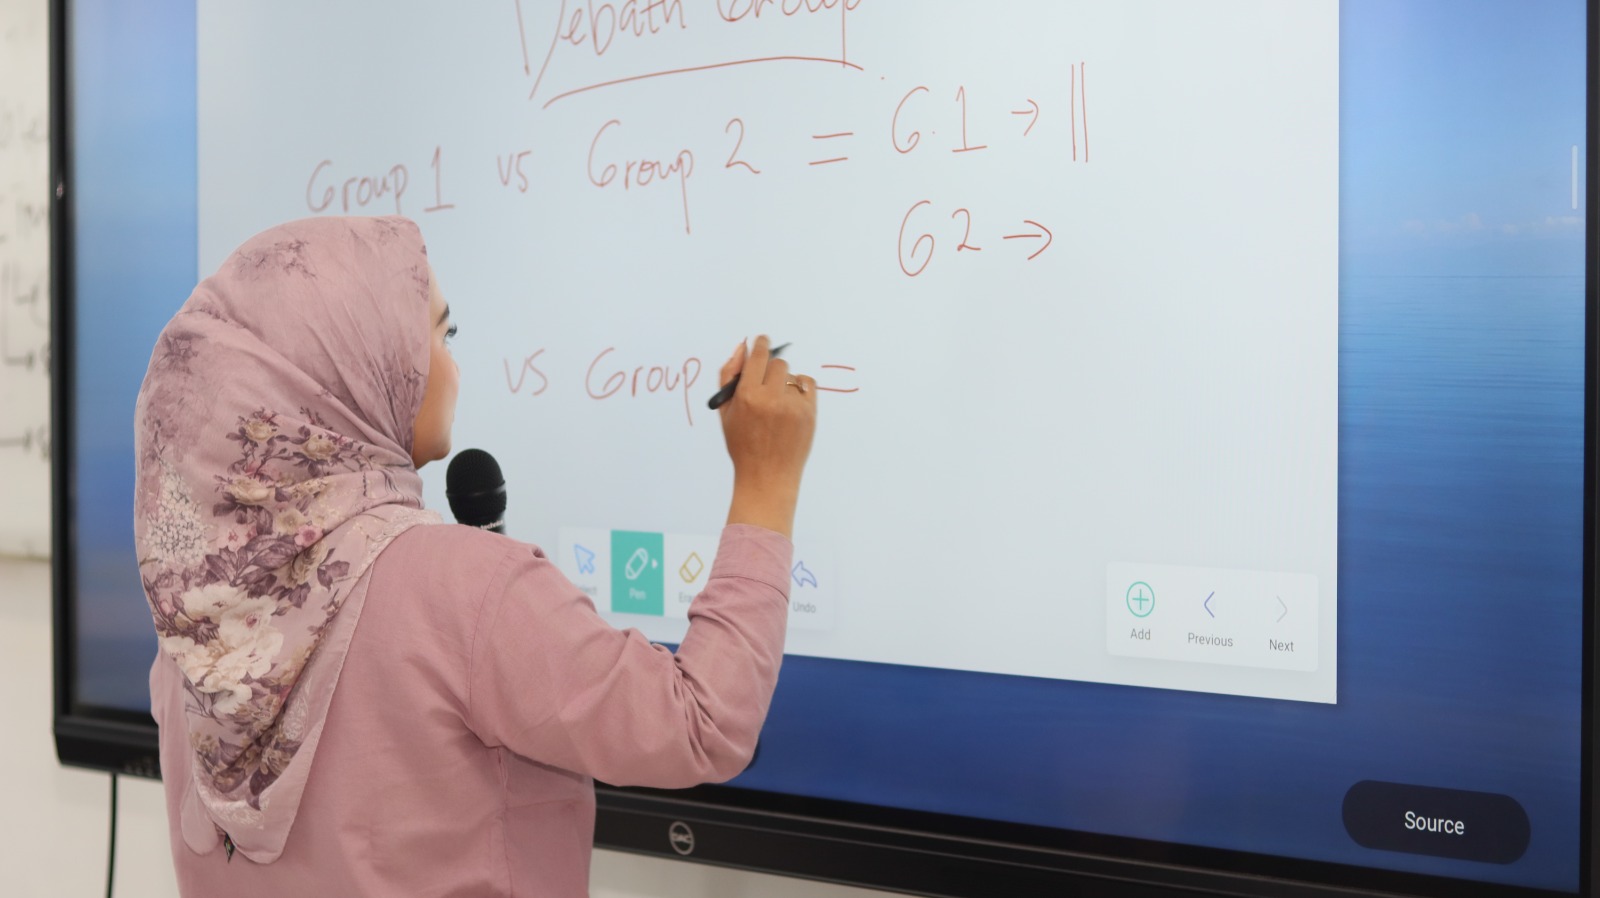 Debath Group
Group 1 vs Group 2 = G.1 → ||
G2 →
vs Group =
Pen
Undo
Add
Previous
Next
Source